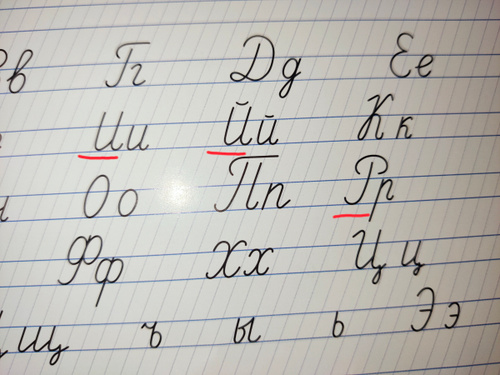 в Гг Дд Ее
Ии Йй Кк
Оо Пп Рр
Фф Хх Цц
щ ъ ы ь Ээ